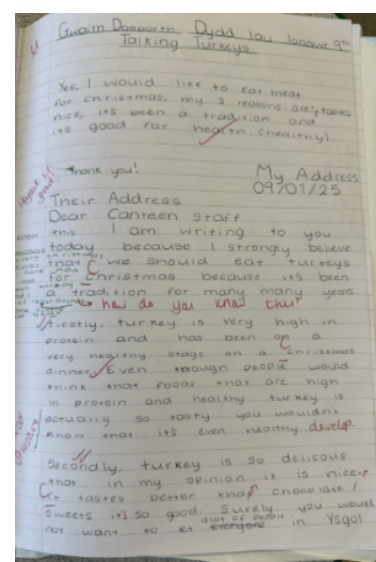 Gwaith Dosbarth Dydd Iau Ionawr 9fed
Talking Turkeys
Yes, I would like to eat meat
for christmas, my 3 reasons are: tastes
nice, it's been a tradition and
its good for health. (healthy)
Thank you!
My Address
09/01/25
Their Address
Dear Canteen Staff
I am writing to you
today because I strongly believe
that we should eat turkeys
for Christmas because it's been
a tradition for many many years
how do you know this?
firstly, turkey is very high in
protein and has been on a
very healthy stage on a christmas
dinner. Even though people would
think that foods that are high
in protein and healthy turkey is
actually so tasty you wouldn't
know that it's even healthy. develop.
Secondly, turkey is so delicous
that in my opinion it is nice.
It tastes better than chocolate /
sweets it's so good. Surely you would
alot of people
not want to everyone in Ysgol